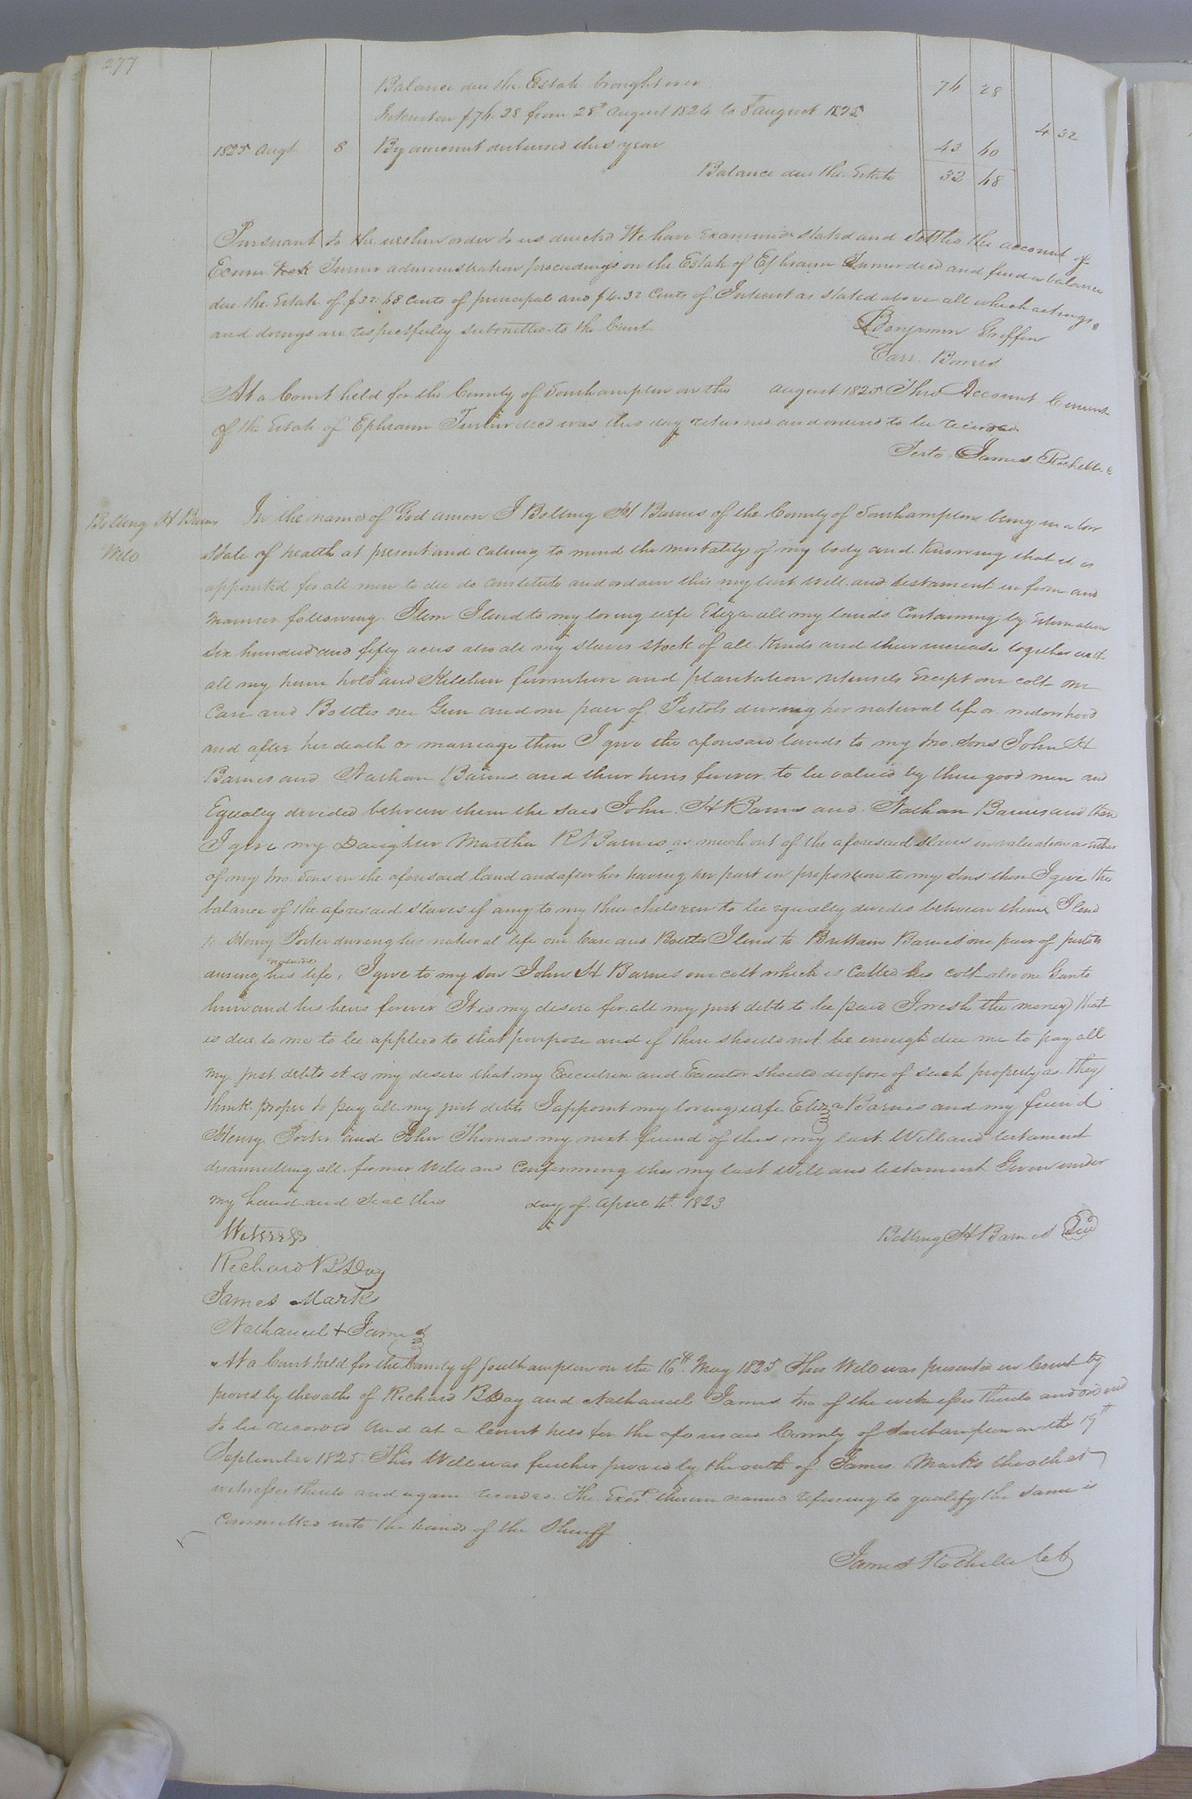 277
Balance due the Estate brought over 76 28
Interest on $76.28 from 28th August 1824 to 8 August 1825 4 32
1825 Augt 8 By amount disbursed this year 43 60
Balance due the Estate 32 68
Pursuant to the within order to us directed We have Examined stated and settled the account of
Turner administration proceedings on the Estate of Ephraim Turner decd and find a balance
due the Estate of $32.68 cents of principal and $4.32 Cents of Interest as stated above all which actings
and doings are respectfully submitted to the Court
Benjamin Griffin
Carr Bowers
At a Court held for the County of Southampton on the August 1825 This Account Current
of the Estate of Ephraim Turner decd was this day returned and ordered to be recorded
Teste James Rochelle
Bolling H Barnes
Will
In the name of God amen I Bolling H Barnes of the County of Southampton being in a low
State of health at present and calling to mind the mortality of my body and Knowing that it is
appointed for all men to die do constitute and ordain this my last will and testament in form and
manner following Item I lend to my loving wife Eliza all my lands Containing by Estimation
Six hundred and fifty acres also all my slaves stock of all Kinds and their increase together with
all my house hold and Kitchen furniture and plantation utensils Except one colt one
Case and Bottles one Gun and one pair of Pistols during her natural life or widowhood
and after her death or marriage then I give the aforesaid lands to my two sons John H
Barnes and Nathan Barnes and their heirs forever to be valued by three good men and
Equally divided between them the said John H Barnes and Nathan Barnes and then
I give my Daughter Martha R Barnes as much out of the aforesaid slaves in valuation as either
of my two sons in the aforesaid land and after her having her part in proportion to my sons then I give the
balance of the aforesaid slaves if any to my three children to be equally divided between them I lend
to Henry Porter during his natural life one Case and Bottles I lend to Brittain Barnes one pair of pistols
during his natural life, I give to my son John H Barnes one colt which is called his colt also one Gun to
him and his heirs forever It is my desire for all my just debts to be paid I wish the money that
is due to me to be applied to that purpose and if there should not be enough due me to pay all
my just debts it is my desire that my Executrix and Executor should dispose of such property as they
think proper to pay all my just debts I appoint my loving wife Eliza Barnes and my friend
Henry Porter and John Thomas my next friend of this my last Will and testament
disannulling all former Wills and Confirming this my last Will and testament Given under
my hand and seal this day of April 4th 1823
Witness
Bolling H Barnes Seal
Richard B Day
James Marks
Nathaniel + James
At a Court held for the County of Southampton on the 16th May 1825 This Will was presented in Court by
proved by the oath of Richard B Day and Nathaniel James two of the witnesses thereto and ordered
to be recorded And at a Court held for the aforesaid County of Southampton on the 19th
September 1825 This Will was further proved by the oath of James Marks the other
witness thereto and again recorded. The Exors therein named refusing to qualify the same is
committed into the hands of the Sheriff
James Rochelle